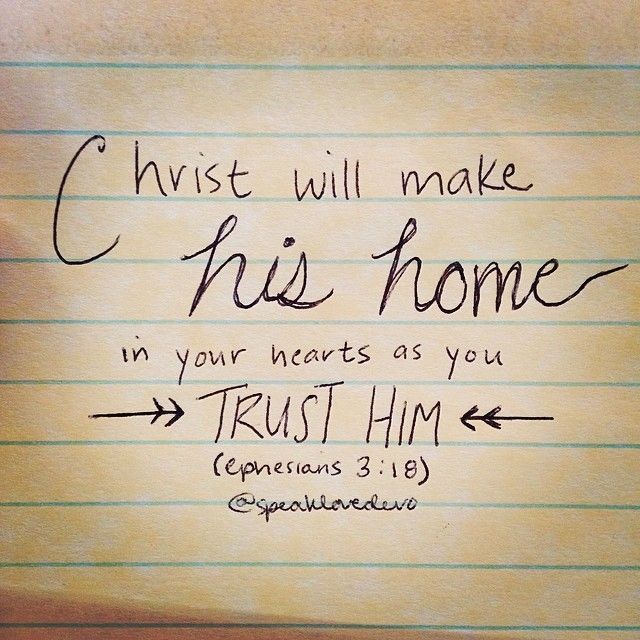 Christ will make
his home
in your hearts as you
TRUST HIM
(ephesians 3:18)
@speaklovedevo